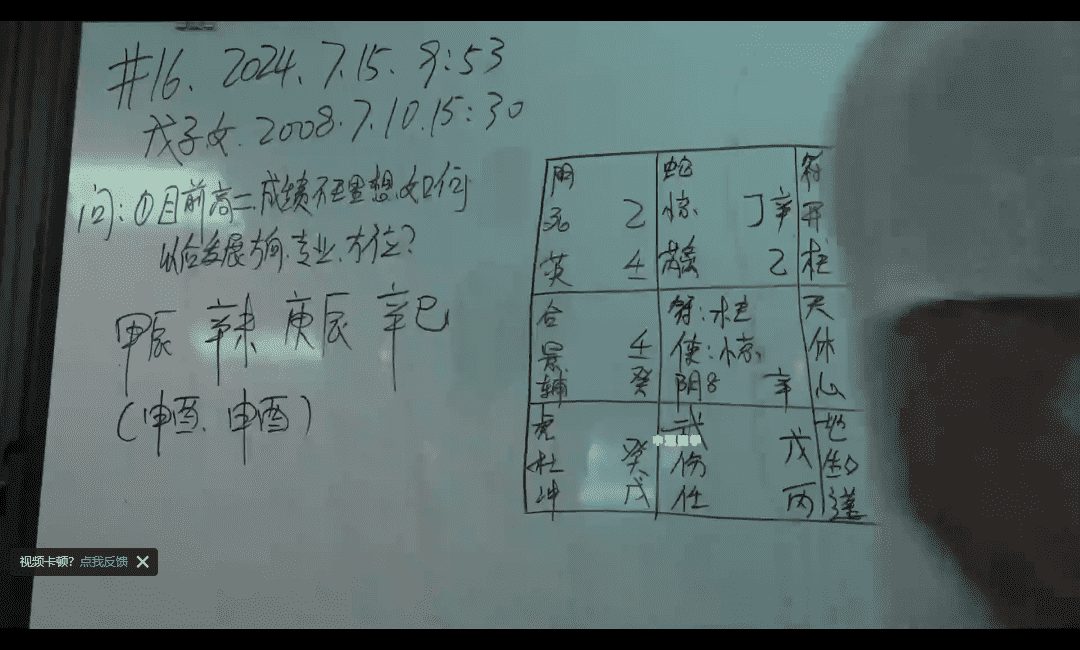 #16. 2024.7.15. 9:53
戊子女. 2008.7.10.15:30
问: ①目前高二.成绩不理想.如何
发展方向.专业.方位?
甲辰 辛未 庚辰 辛巳
(申酉. 申酉)
阴 蛇 符
死 乙 惊 丁辛 开
英 壬 芮禽 乙 柱
合 符:柱 天
景 壬 使:惊 休
辅 癸 阴8 辛 心
虎 武 戊 地
杜 癸 伤 生
冲 戊 任 丙 蓬
视频卡顿? 点我反馈 ✕